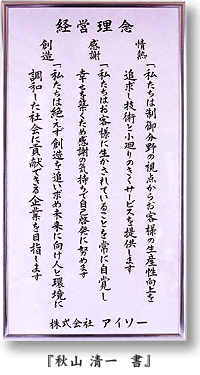 経営理念
情熱
「私たちは制御分野の視点からお客様の生産性向上を
追求し技術と小廻りのきくサービスを提供します
感謝
「私たちはお客様に生かされていることを常に自覚し
幸せを築くため感謝の気持ちで自己啓発に努めます
創造
「私たちは絶えず創造を追い求め未来に向け人と環境に
調和した社会に貢献できる企業を目指します
株式会社 アイソー
『秋山 清一 書』